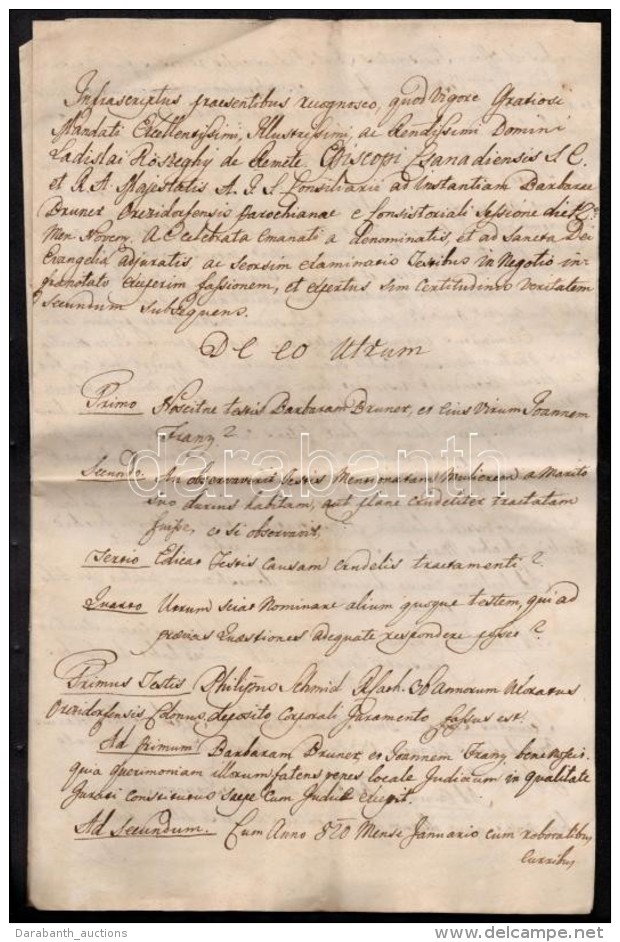 Infrascriptus praesentibus recognosco, quod Vigore Gratiosi
Mandati Excellentissimi, Illustrissimi, ac Rendissimi Domini
Ladislai Kőszeghy de Remete, Episcopi Csanadiensis S. C.
et R. A. Majestatis A. I. S. Consiliarii ad Instantiam Barbarae
Bruner Orczidorfensis parochianae e Consistoriali Sessione die
Men. Novem. A celebrata emanati a denominatis, et ad Sancta Dei
Evangelia adjuratis, ac seorsim examinatis Testibus in Negotio in-
franotato exceperim fassionem, et expertus sim Certitudinis Veritatem
Secundum Subsequens.
De eo Utrum
Primo Noscitne testis Barbaram Bruner, et eius Virum Joannem
Franz?
Secundo An observaverit testis Mentionatam Mulierem a Marito
suo durius habitam, aut plane crudeliter tractatam
fuisse, et si observavit?
Tertio Edicat Testis causam crudelis tractamenti?
Quarto Utrum sciat Nominare alium quoque testem, qui ad
praevias Quaestiones adequate respondere posset?
Primus Testis Philippus Schmid 30 Annorum Uxoratus
Orczidorfensis Colonus, deposito Corporali Juramento fassus est.
Ad primum Barbaram Bruner, et Joannem Franz bene
quia querimoniam illorum penes locale Judicium in qualitate
Jurati constitutus saepe cum Judice excepit.
Ad Secundum. Cum Anno 820 Mense Januario cum roboratibus
curribus
darabanth
Darabanth_auctions